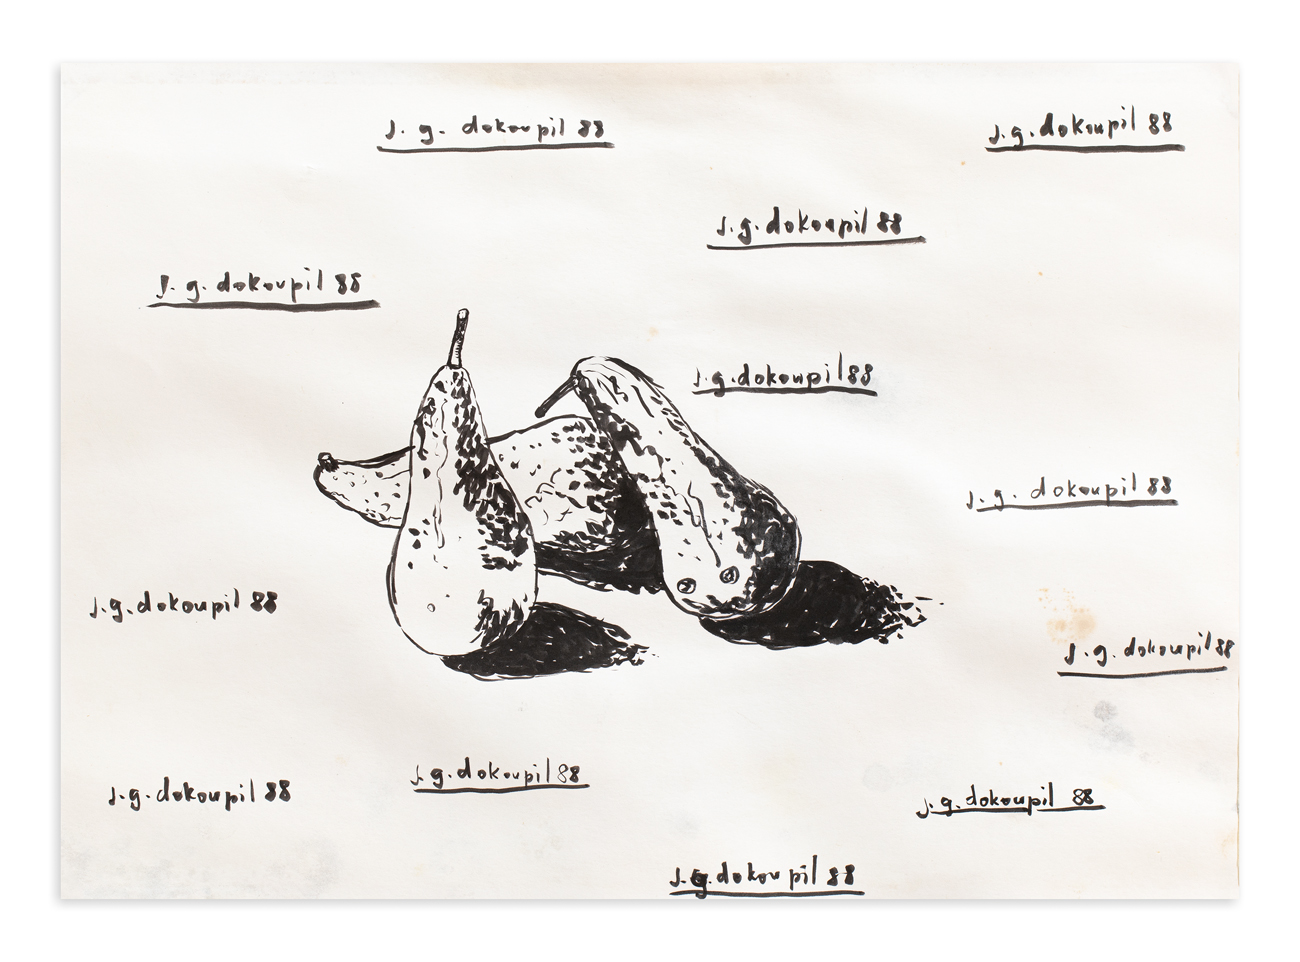 j. g. dokoupil 88
j.g. dokoupil 88
j.g. dokoupil 88
j. g. dokoupil 88
j.g. dokoupil 88
j. g. dokoupil 88
j.g. dokoupil 88
j.g. dokoupil 88
j.g. dokoupil 88
j.g. dokoupil 88
j.g. dokoupil 88
j.g. dokoupil 88